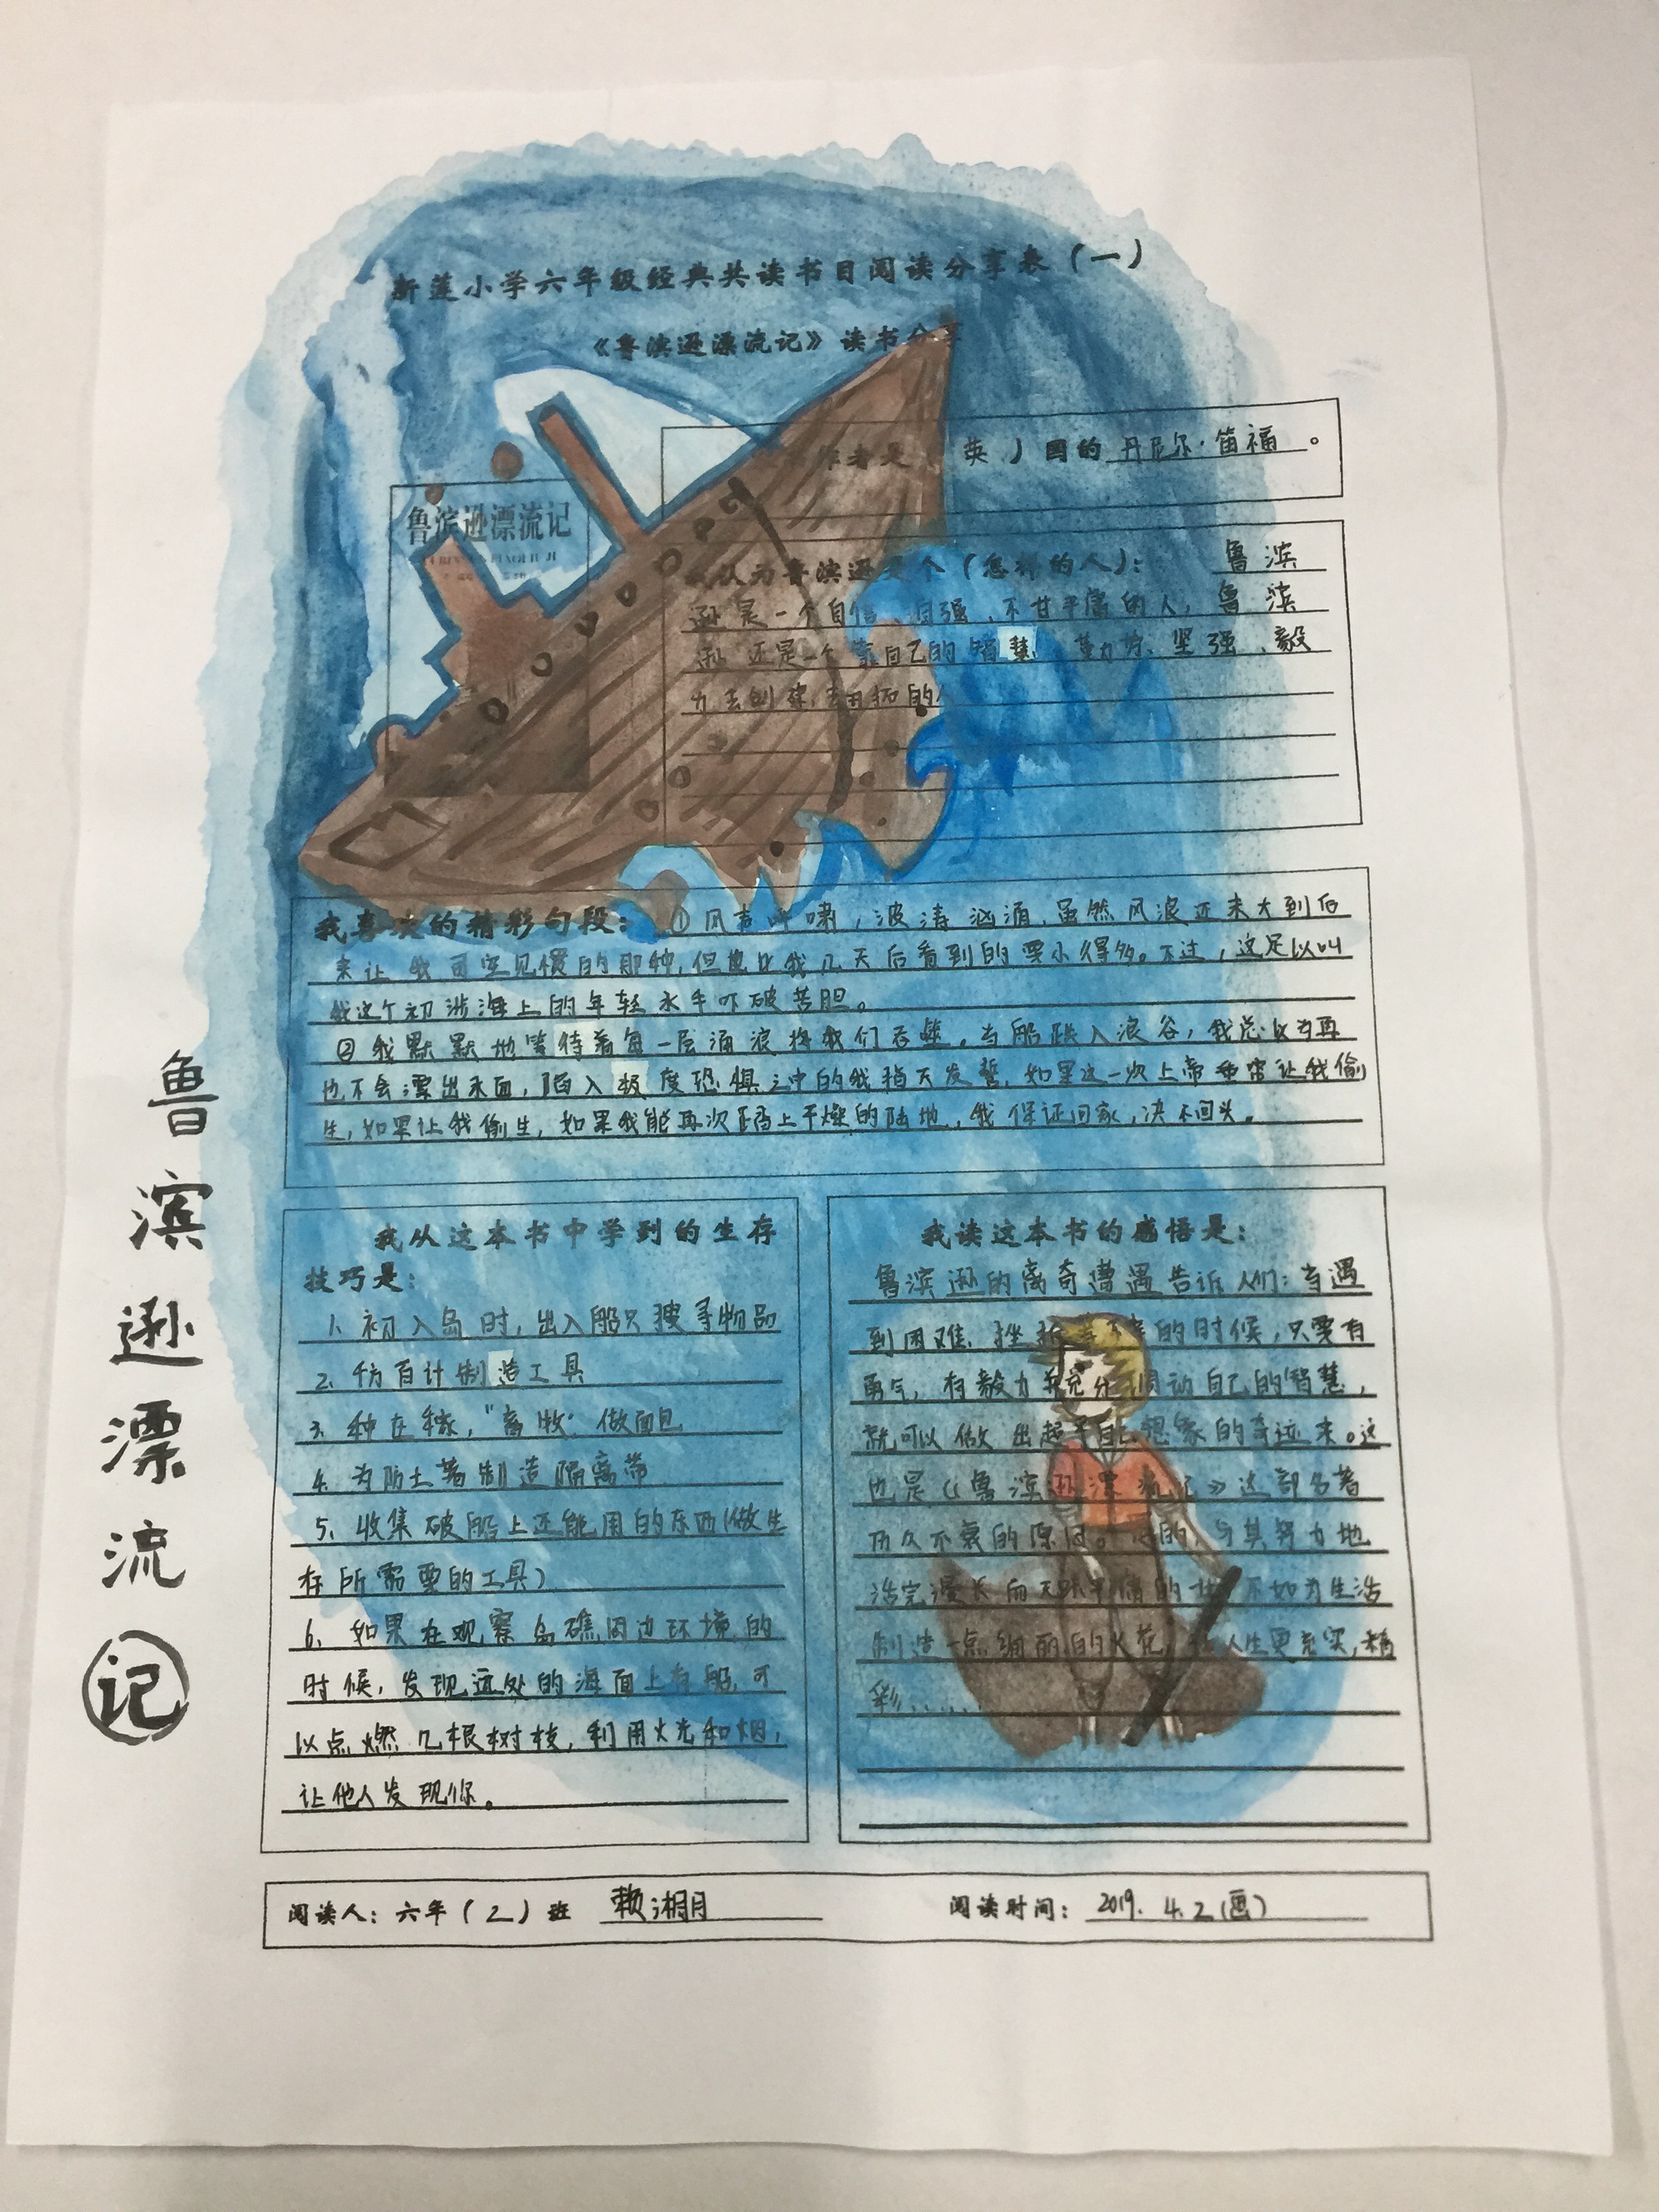 新莲小学六年级经典共读书目阅读分享表（一）
《鲁滨逊漂流记》读书分享
作者是（英）国的丹尼尔·笛福。
鲁滨逊漂流记
我认为鲁滨逊是个（怎样的人）：鲁滨
逊是一个自信、自强、不甘平庸的人，鲁滨
逊还是一个靠自己的智慧、勤劳、坚强、毅
力去创建、去开拓的
我喜欢的精彩句段：①风声呼啸，波涛汹涌，虽然风浪还未大到后
来让我司空见惯的那种，但也比我几天后看到的要小得多。不过，这足以叫
我这个初涉海上的年轻水手吓破苦胆。
②我默默地等待着每一层涌浪将我们吞噬。当船跌入浪谷，我总以为再
也不会漂出水面，陷入极度恐惧之中的我稍天发誓，如果这一次上帝垂雷让我偷
生，如果让我偷生，如果我能再次踏上干燥的陆地，我保证回家，决不回头。
我从这本书中学到的生存
技巧是：
1、初入岛时，出入船只搜寻物品
2、千方百计制造工具
3、种庄稼，“畜牧”做面包
4、为防土著制造隔离带
5、收集破船上还能用的东西（做生
存所需要的工具）
6、如果在观察岛礁周边环境的
时候，发现远处的海面上有船，可
以点燃几根树枝，利用火光和烟，
让他人发现你。
我读这本书的感悟是：
鲁滨逊的离奇遭遇告诉人们：当遇
到困难、挫折等的时候，只要有
勇气，有毅力并充分调动自己的智慧，
就可以做出超乎自己想象的奇迹来。这
也是《鲁滨逊漂流记》这部名著
历久不衰的原因。是的，与其努力地
活完漫长而无味平庸的一世，不如为生活
制造一点绚丽的火花，让人生更充实，精
彩……
阅读人：六年（2）班 赖湘月
阅读时间：2019.4.2（画）
鲁滨逊漂流记